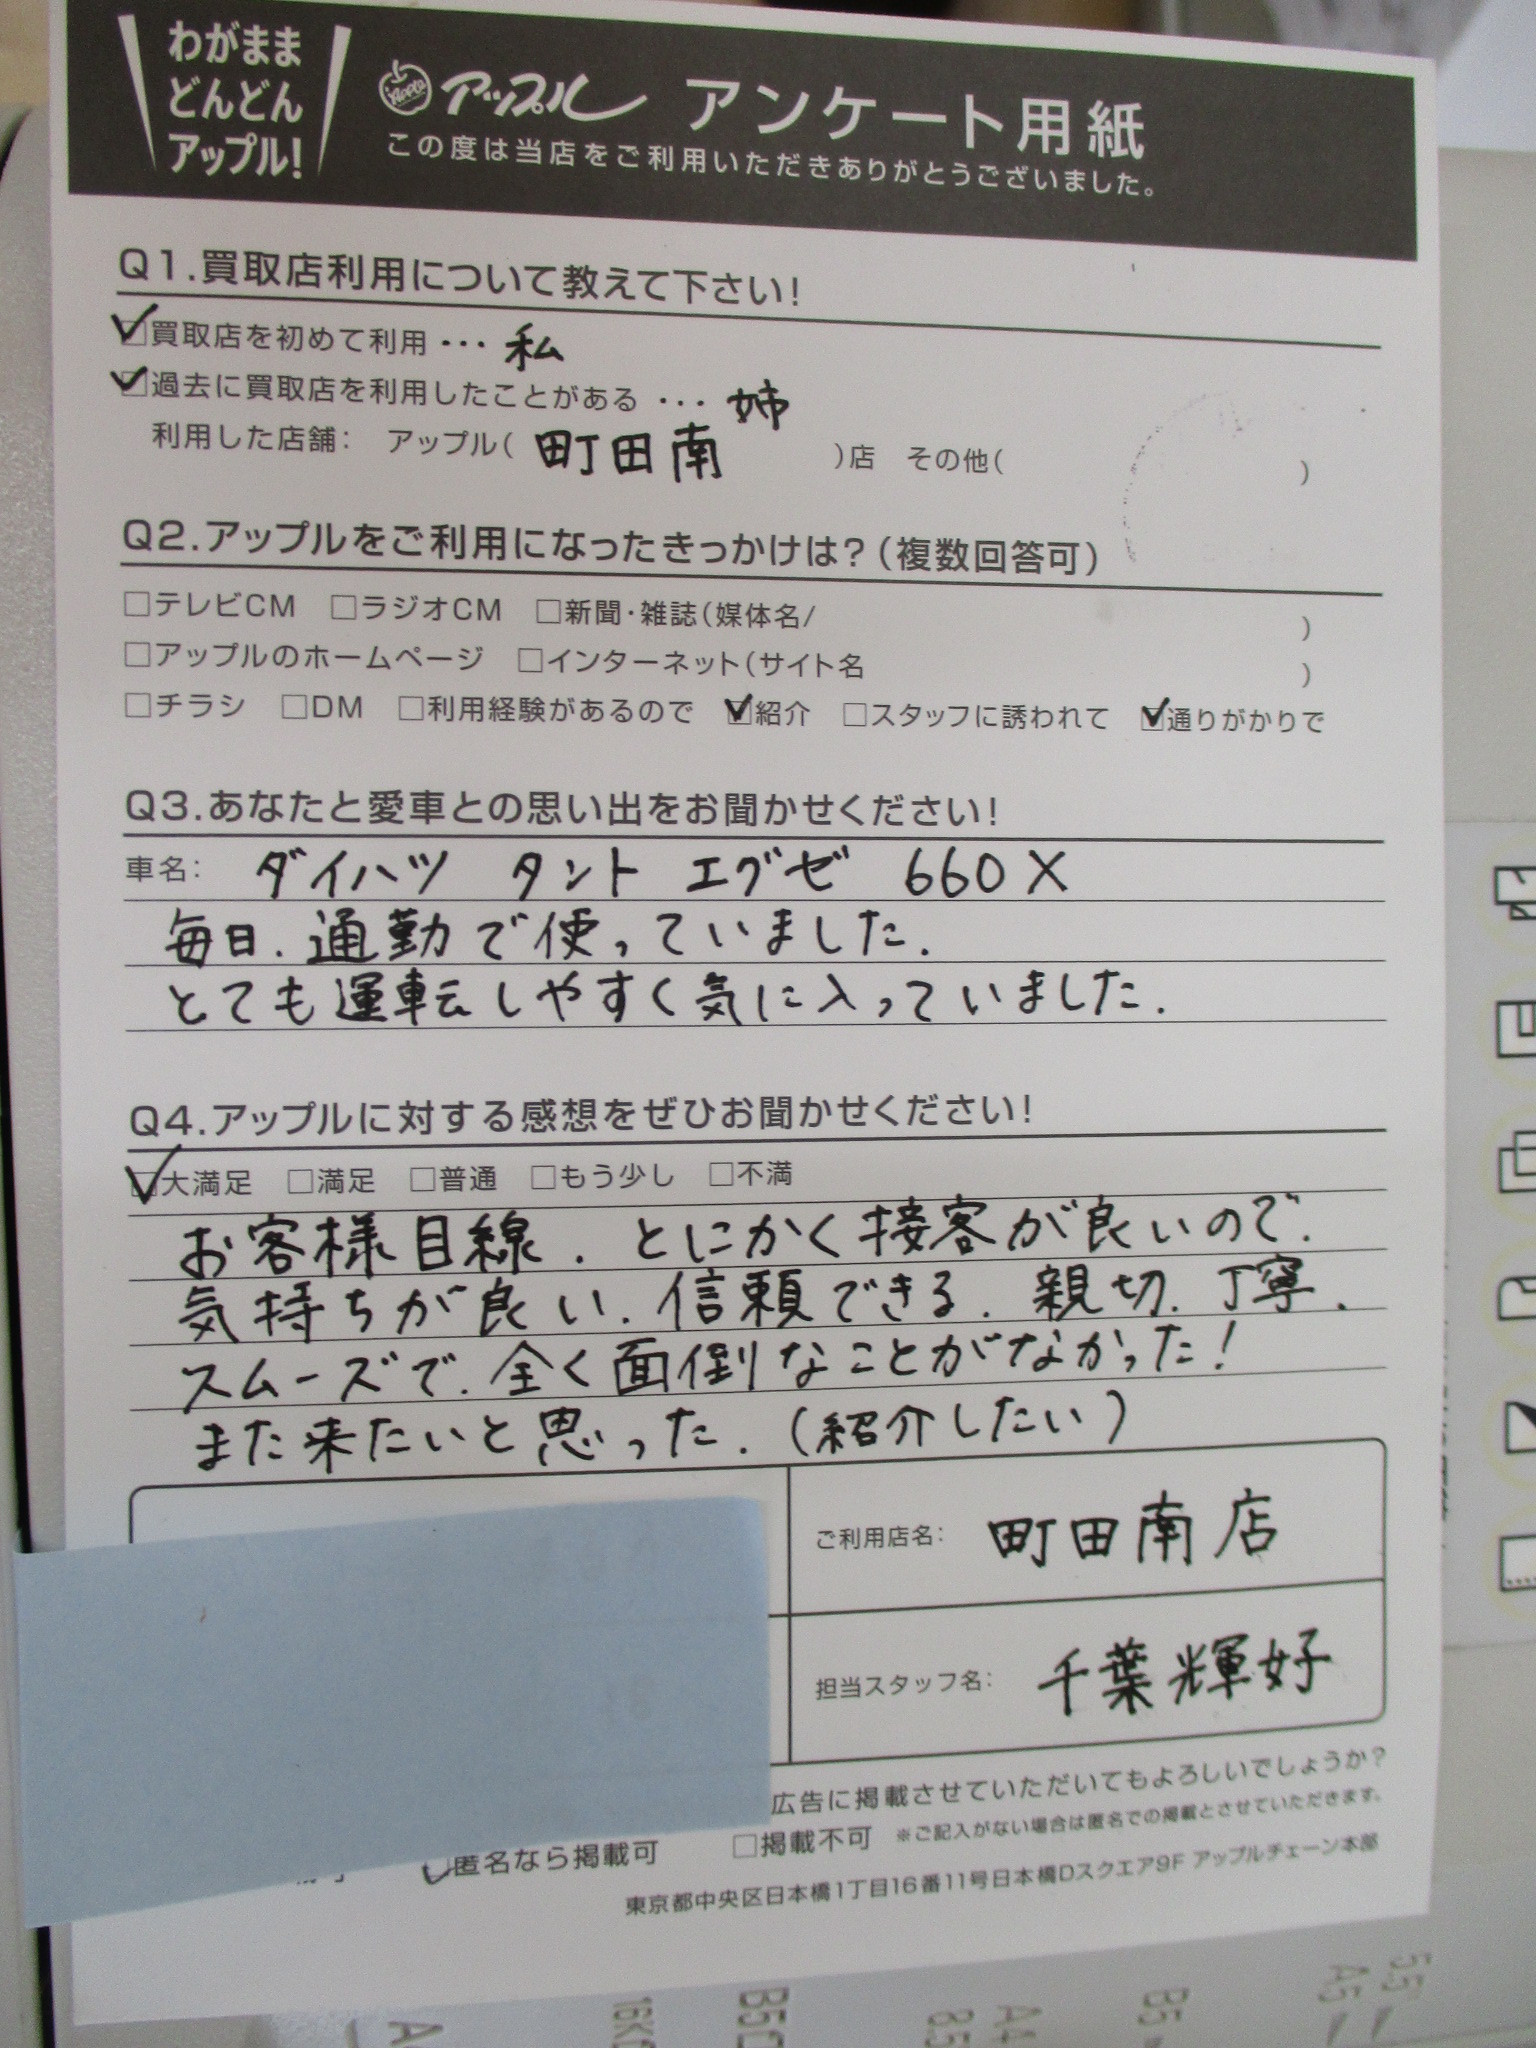 わがまま
どんどん
アップル!
Apple アップル アンケート用紙
この度は当店をご利用いただきありがとうございました。
Q1.買取店利用について教えて下さい!
買取店を初めて利用・・・私
過去に買取店を利用したことがある・・・姉
利用した店舗: アップル(町田南)店 その他( )
Q2.アップルをご利用になったきっかけは?(複数回答可)
□テレビCM □ラジオCM □新聞・雑誌(媒体名/ )
□アップルのホームページ □インターネット(サイト名 )
□チラシ □DM □利用経験があるので ☑紹介 □スタッフに誘われて ☑通りがかりで
Q3.あなたと愛車との思い出をお聞かせください!
車名: ダイハツ タント エグゼ 660X
毎日.通勤で使っていました.
とても運転しやすく気に入っていました.
Q4.アップルに対する感想をぜひお聞かせください!
☑大満足 □満足 □普通 □もう少し □不満
お客様目線.とにかく接客が良いので.
気持ちが良い.信頼できる.親切.丁寧.
スムーズで.全く面倒なことがなかった!
また来たいと思った.(紹介したい)
ご利用店名: 町田南店
担当スタッフ名: 千葉輝好
広告に掲載させていただいてもよろしいでしょうか?
☑匿名なら掲載可 □掲載不可 ※ご記入がない場合は匿名での掲載とさせていただきます。
東京都中央区日本橋1丁目16番11号日本橋Dスクエア9F アップルチェーン本部
16K
B5
B5
A4
B5
A5
5.5